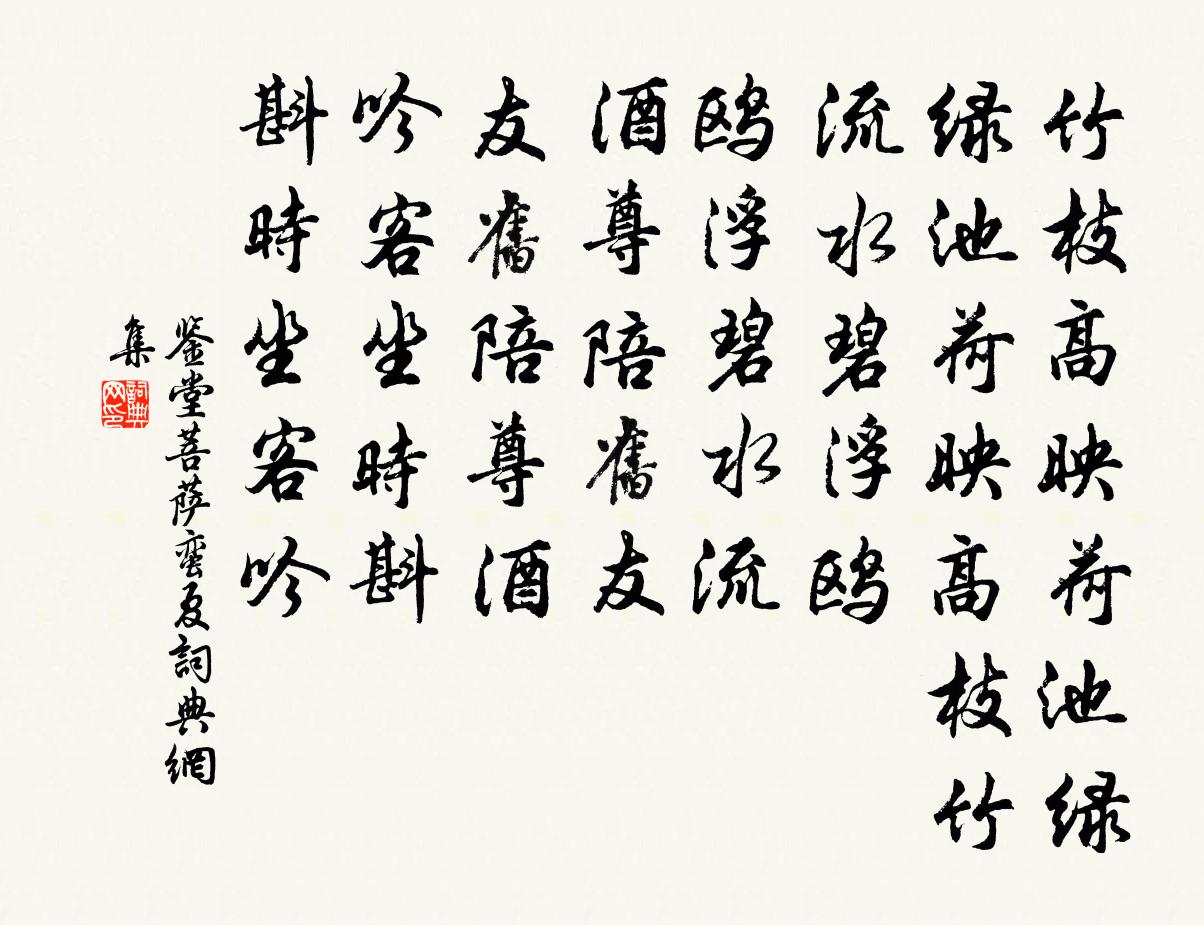 竹枝高映荷池绿
绿池荷映高枝竹
流水碧浮鸥
鸥浮碧水流
酒尊陪舊友
友舊陪尊酒
吟客坐時斟
斟時坐客吟
鉴堂菩萨蛮夏詞典網
集
詞典
网印